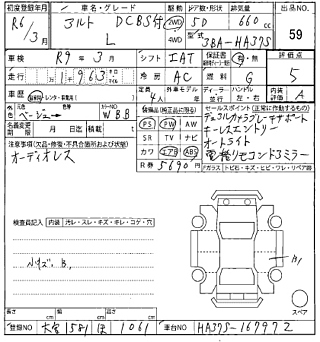 初度登録年月 車名・グレード 駆動 ドア枚数・形状 排気量 出品No.
R6/3月 アルト DCBS付 L 2WD 4WD 5D 660cc 59
型式 3BA-HA37S
車検 R9年3月 シフト IAT 保証書 有・無 評価点
走行 1,963 冷房 AC 燃料 G 5
車歴 定員 4人 外装モデル ディーラー 並行 ハンドル 左 右 内装評価 A
色 ベージュ カラーNo. WBB
名義変更期限 月 日迄 積載量 t
PS PW AW
SR TV ナビ
カワ エアB ABS
R券 5690円
セールスポイント(正常に作動するもの)
デュアルカメラブレーキサポート
キーレスエントリー
オートライト
電格リモコンドミラー
注意事項(欠品・修復・不具合箇所および状態)
オーディオレス
検査員記入 内装 汚レ・スレ・キズ・キレ・コゲ・穴
小キズ. B,
スペア
長さ cm 幅 cm 高さ cm
登録No 大宮 581 ほ 1061 車台No HA37S-167972